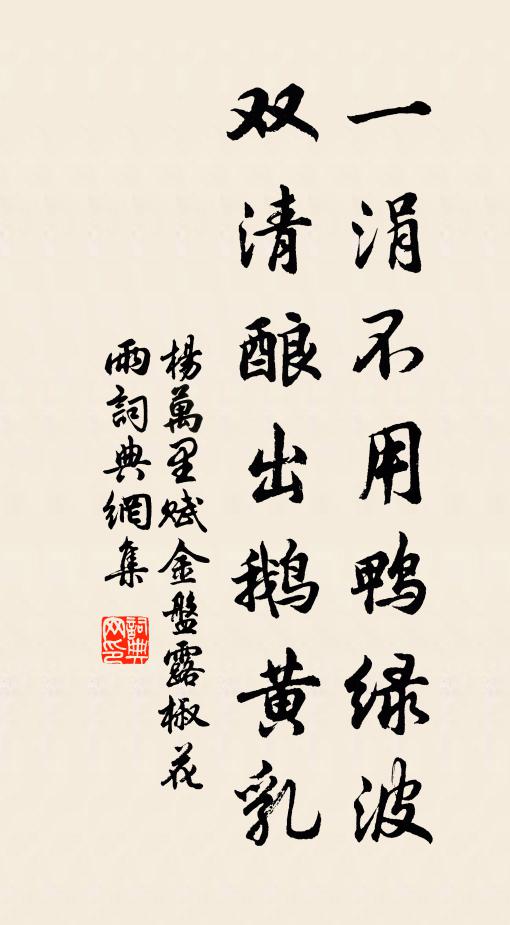 一涓不用鸭绿波
双清酿出鹅黄乳
楊萬里赋金盤露椒花
雨詞典網集
詞典网印